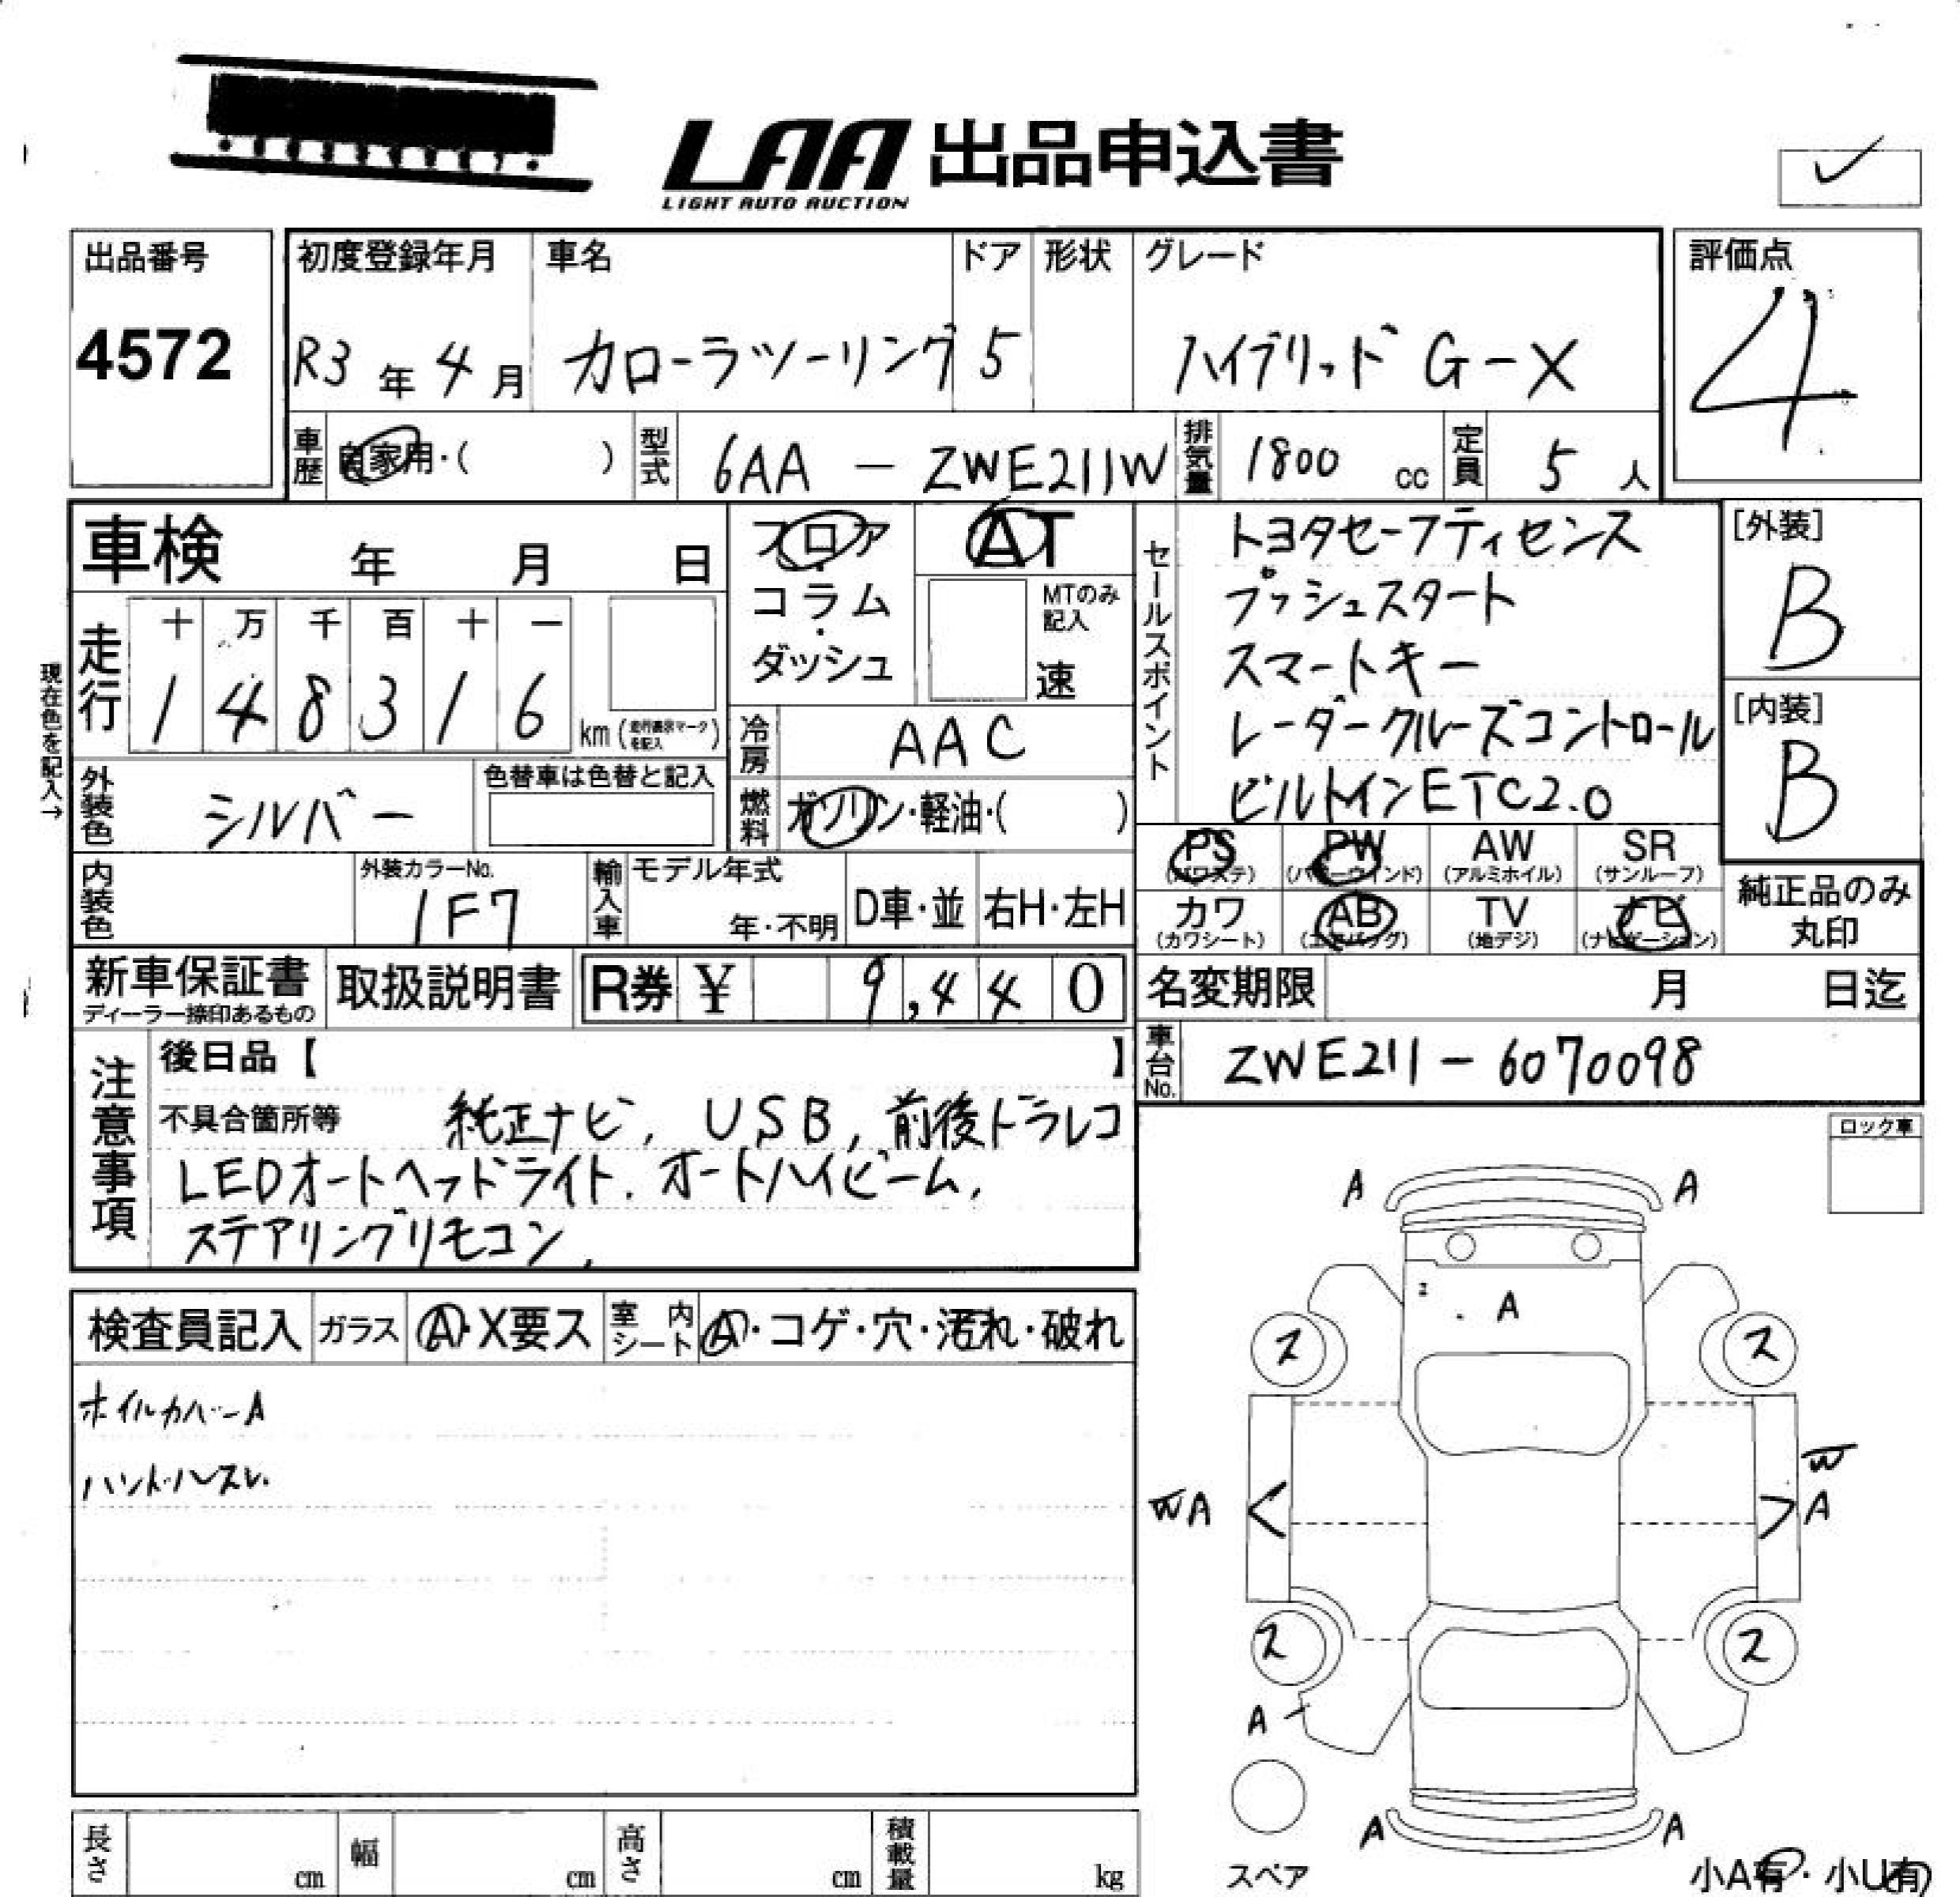 LAA 出品申込書
LIGHT AUTO AUCTION
出品番号
4572
初度登録年月
R3 年 4 月
車名
カローラツーリング
ドア
5
形状
グレード
ハイブリッド G-X
評価点
4
車歴
自家用・( )
型式
6AA - ZWE211W
排気量
1800 cc
定員
5 人
車検 年 月 日
フロア
・
コラム
・
ダッシュ
AT
MTのみ
記入
速
セールスポイント
トヨタセーフティセンス
プッシュスタート
スマートキー
レーダークルーズコントロール
ビルトインETC2.0
[外装]
B
[内装]
B
現在色を記入→
走行
十 万 千 百 十 一
1 4 8 3 1 6 km
冷房
AAC
外装色
シルバー
色替車は色替と記入
燃料
ガソリン・軽油・( )
PS PW AW SR
(パワステ) (パワーウインド) (アルミホイル) (サンルーフ)
カワ AB TV ナビ
(カワシート) (エアバッグ) (地デジ) (ナビゲーション)
純正品のみ
丸印
内装色
外装カラーNo.
1F7
輸入車
モデル年式
年・不明
D車・並
右H・左H
新車保証書
ディーラー捺印あるもの
取扱説明書
R券 ¥ 9,440
名変期限 月 日迄
車台No.
ZWE211-6070098
注意事項
後日品【 】
不具合箇所等 純正ナビ, USB, 前後ドラレコ
LEDオートヘッドライト. オートハイビーム,
ステアリングリモコン,
ロック車
検査員記入
ガラス
A・X要ス
室内シート
A・コゲ・穴・汚れ・破れ
ホイルカバーA
ハンドルスレ
A A
A
ス ス
W
WA A
ス ス
A
A A
スペア
長さ cm
幅 cm
高さ cm
積載量 kg
小A有・小U有